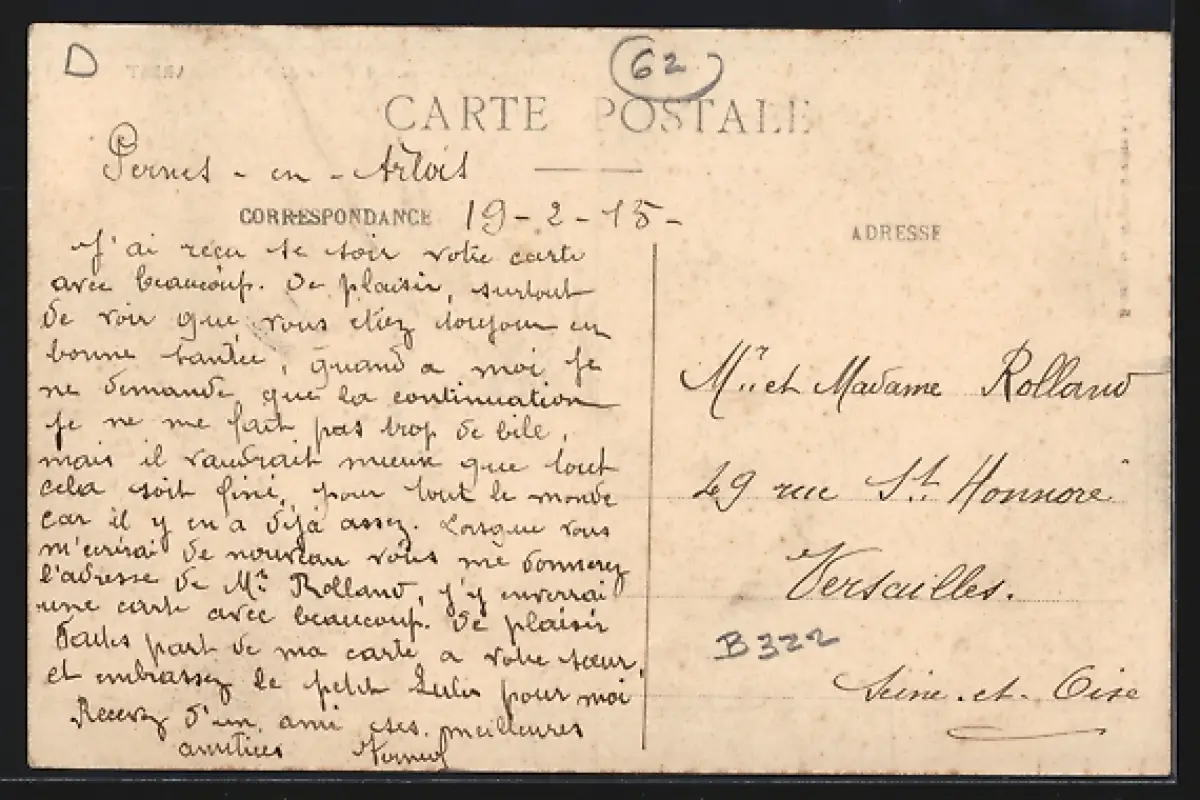 D
62
CARTE POSTALE
Pernes - en - Artois
CORRESPONDANCE 19-2-15-
ADRESSE
J'ai reçu se soir votre carte
avec beaucoup. De plaisir, surtout
de voir que vous etiez toujour en
bonne santée, quand a moi je
ne demande que la continuation
je ne me fait pas trop de bile,
mais il vaudrait mieux que tout
cela soit fini, pour tout le monde
car il y en a déjà assez. Lorsque vous
m'ecrirai de nouveau vous me donnerez
l'adresse de Mr Rolland, j'y enverrai
une carte avec beaucoup. De plaisir
Faites part de ma carte a votre sœur,
et embrassez le petit pour moi
Recevez d'un ami ses meilleures
amitiées
Mr et Madame Rolland
49 rue St. Honnoré
Versailles.
B322
Seine-et-Oise